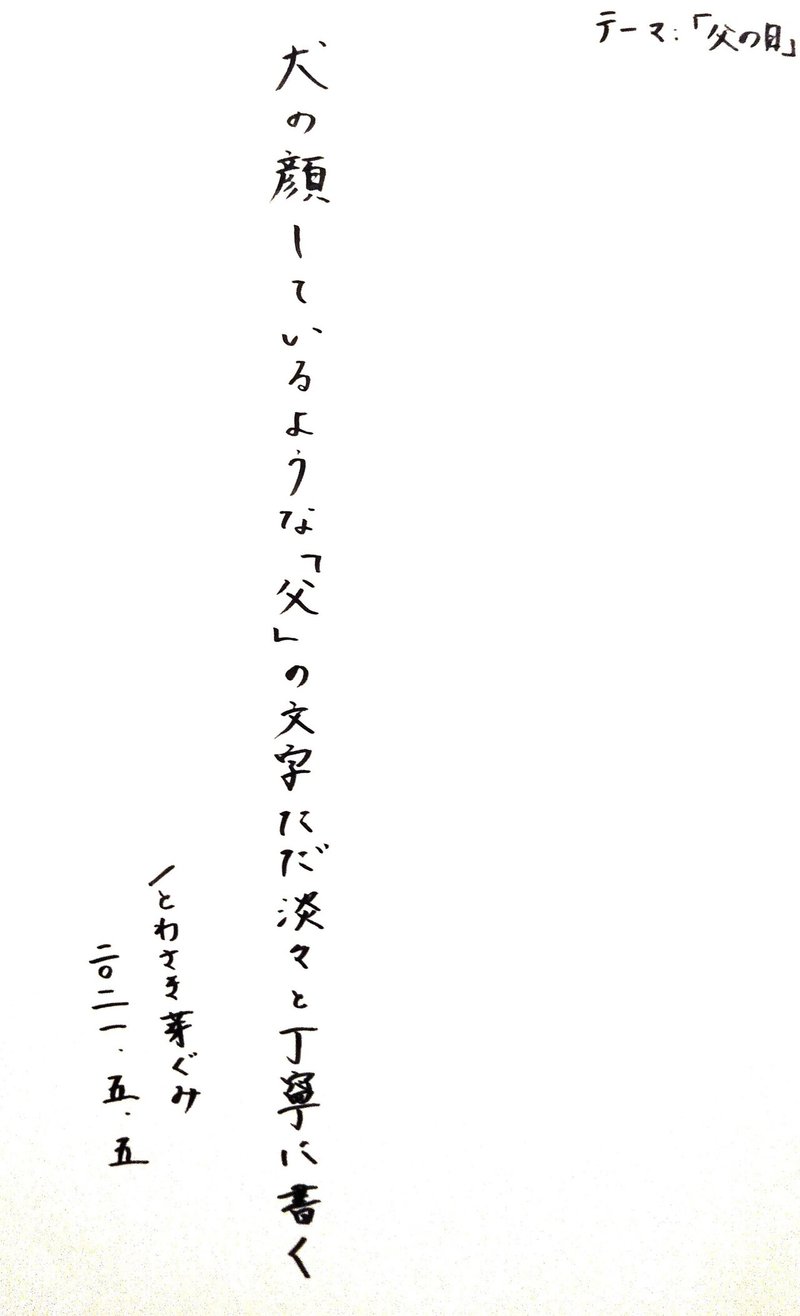 テーマ:「父の日」
犬の顔しているような「父」の文字ただ淡々と丁寧に書く
/とわさき芽ぐみ
二〇二一.五.五